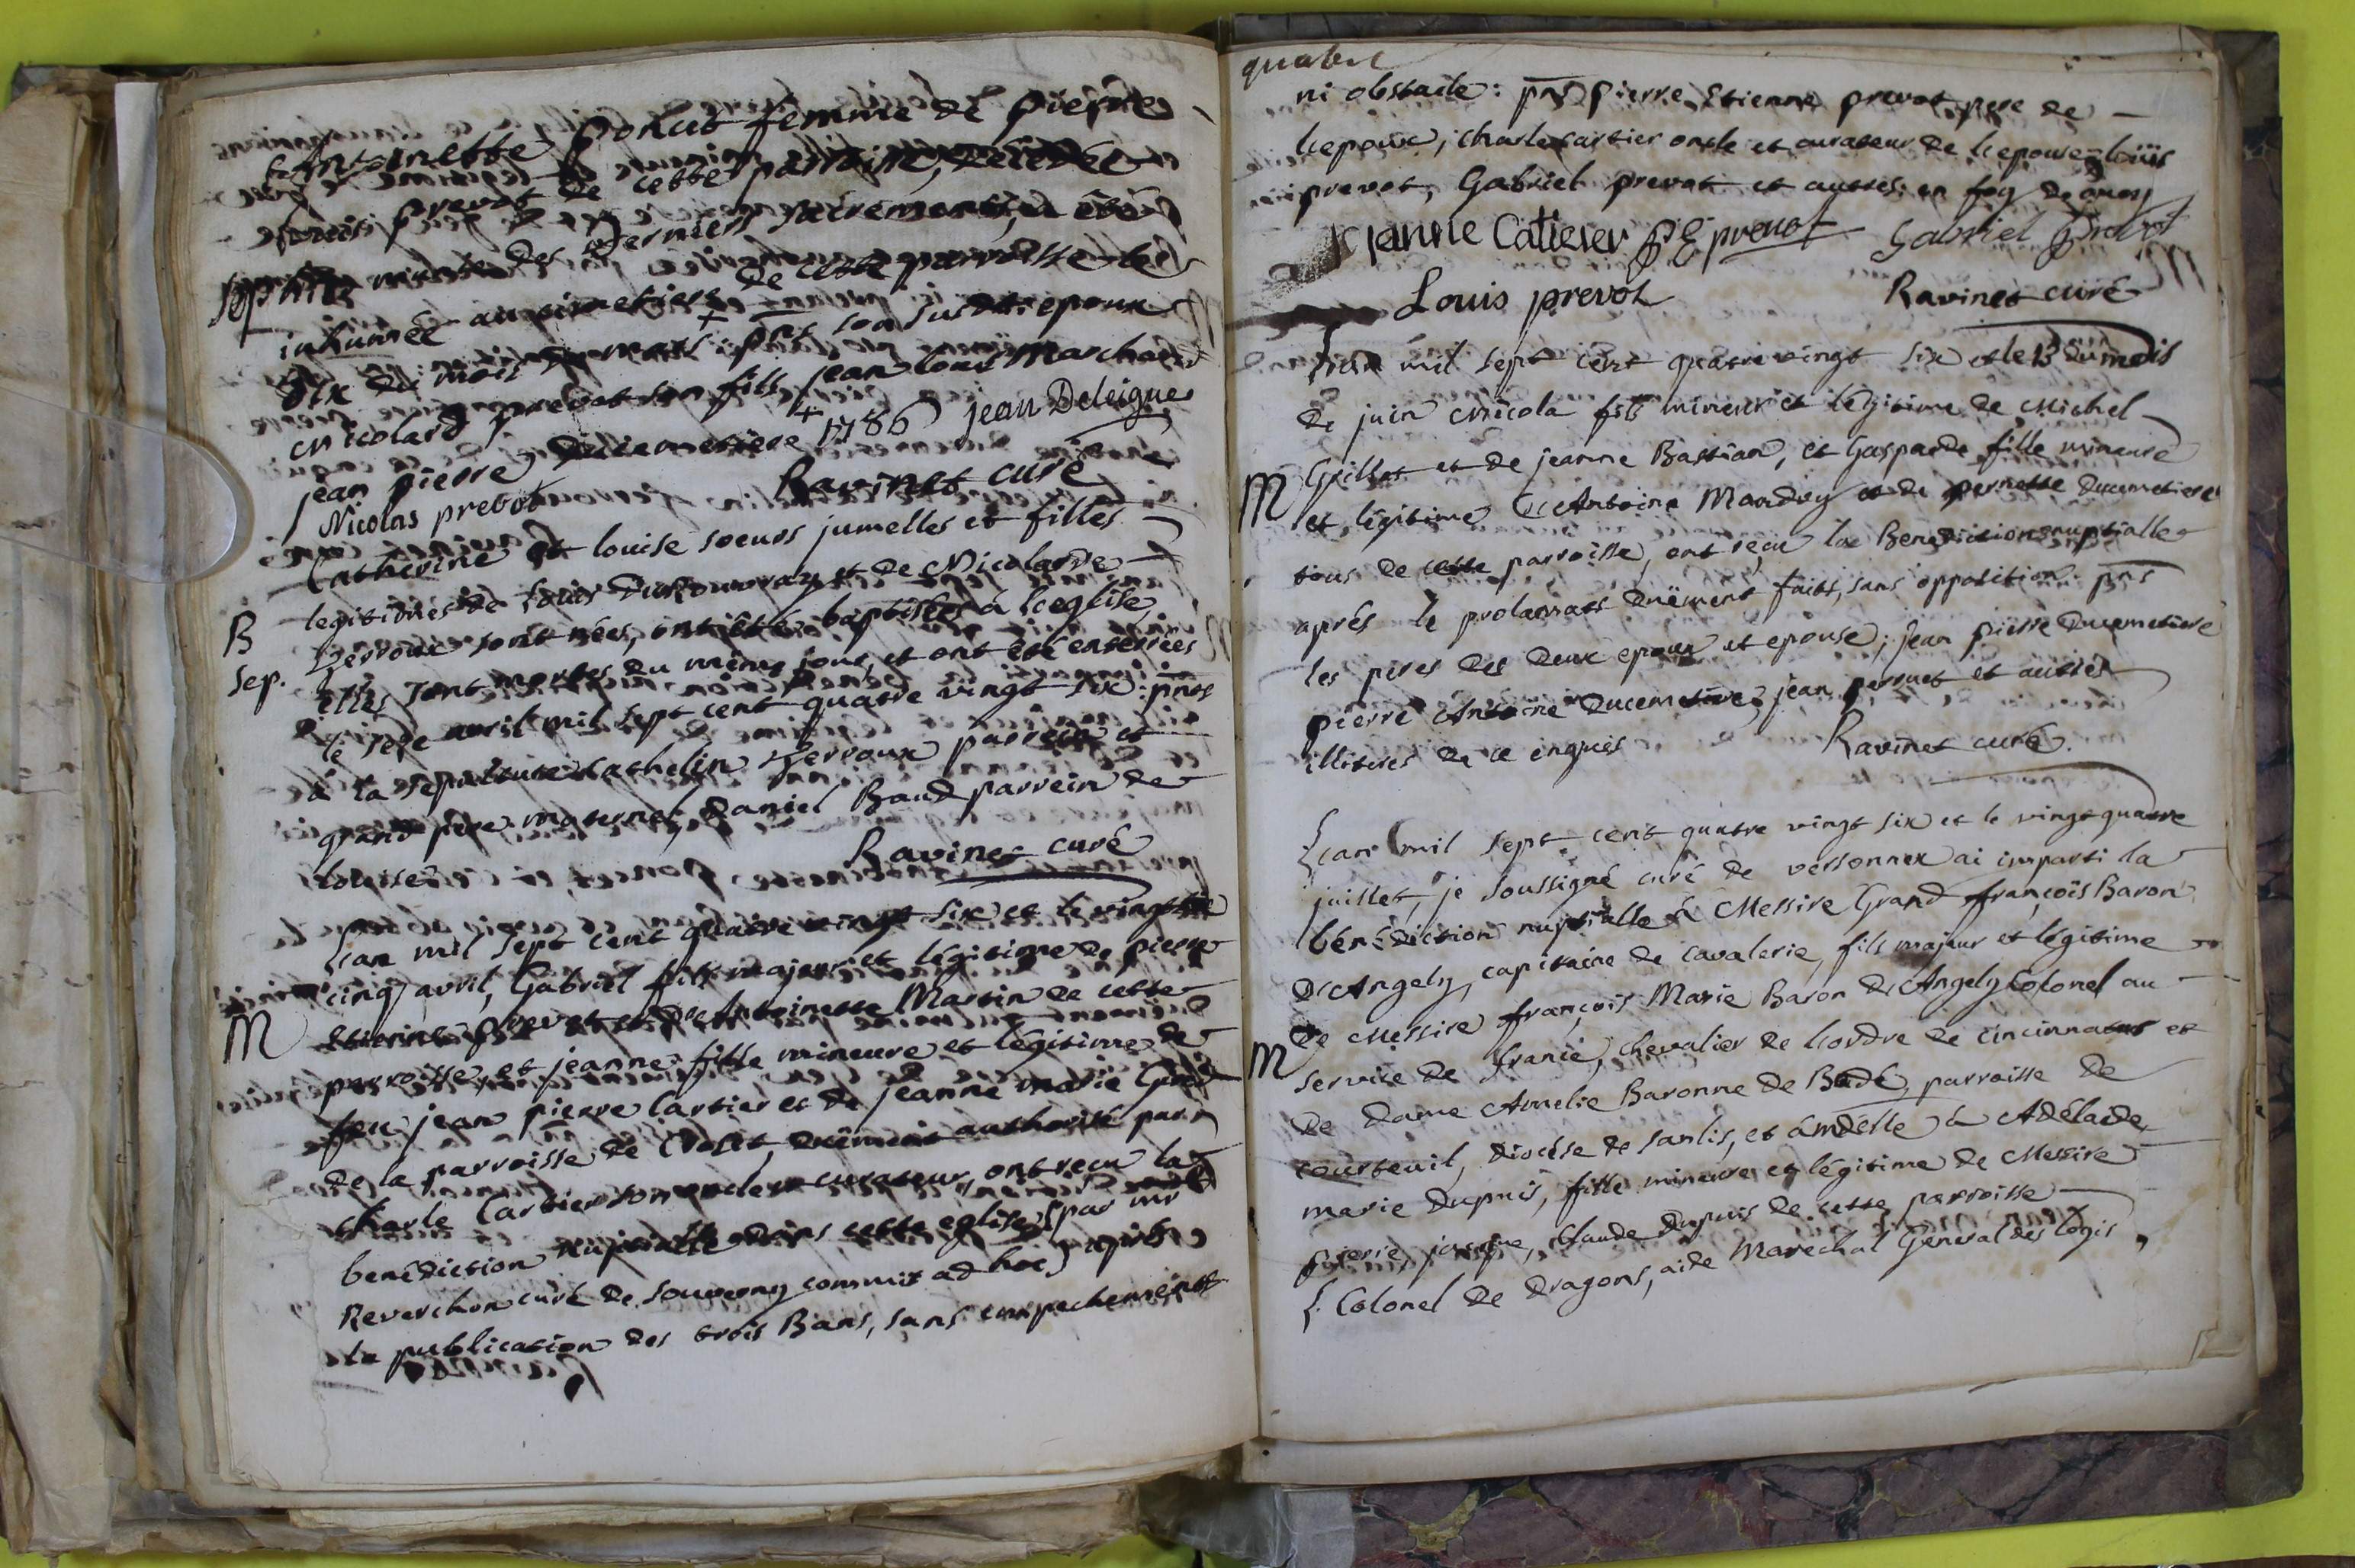 Antoinette Poncet femme de pierre
louis prevot de cette parroisse, décédée
Sep. munie des Derniers sacréments, a été
inhumée au cimetiere de cette parroisse le
dix du mois de mars + pnts son susdit epoux
Nicolard prevot son fils jean louis Marchand
jean pierre Ducemetiere + 1786 jean Deleigue
Nicolas prevot Ravinet curé
Catherine et louise soeurs jumelles et filles
B legitimes de louis et de Nicolarde
Perroux sont nées, ont été baptisées à l'eglise
Sep. elles sont mortes du même jour, et ont été enterrées
le avril mil sept cent quatre vingt six: pnts
à la sepulture Cathelin Perroux parrein et
grand pere maternel, Daniel Baud parrein de
louise Ravinet curé
L'an mil sept cent quatre vingt six et le vingt
cinq avril, Gabriel fils majeur et légitime de pierre
M Etienne prevot et d'Antoinette Martin de cette
parroisse, et jeanne fille mineure et légitime de
feu jean pierre Cartier et de jeanne marie
de la parroisse de Crozet, duëment authorisé par
Charle Cartier son oncle et curateur, ont reçu la
benédiction nuptialle dans cette eglise (par mr
Reverchon curé de Souverny commis ad hoc) après
la publication des trois Bans, sans empechement
quatre
ni obstacle: pnts pierre Etienne prevot pere de
l'epoux, charle cartier oncle et curateur de l'epouse, loüis
prevot, Gabriel prevot et autres: en foy de quoy
jeanne Catieier PE prevot Gabriel Prevot
Louis prevot Ravinet curé
L'an mil sept cent quatre vingt six et le 13 du mois
de juin Nicola fils mineur et légitime de Michel
M Grillet et de jeanne Bastian, et Gasparde fille mineure
et légitime d'Antoine Mandry et de pernette Ducemetiere
tous de cette parroisse, ont reçu la Benediction nuptialle
aprés le proclamats duëment faits, sans opposition: pnts
les peres des deux epoux et epouse; jean pierre Ducemetiere
pierre Antoine Ducemetiere, jean perruet et autres
illiteres de ce enquis Ravinet curé.
L'an mil sept cent quatre vingt six et le vingt quatre
juillet, je soussigné curé de versonnex ai imparti la
bénédiction nuptialle à Messire Grand françois Baron
D'Angely, capitaine de cavalerie, fils majeur et légitime
de Messire françois Marie Baron D'Angely Colonel au
M service de france, chevalier de l'ordre de cincinnatus et
de dame Amelie Baronne de Budé, parroisse de
courteuil, diocèse de sanlis, et à mdelle à Adélaide
marie Dupuis, fille mineure et légitime de Messire
pierre jacque, Claude Dupuis de cette parroisse
L. Colonel de Dragons, aide Maréchal Général des logis,